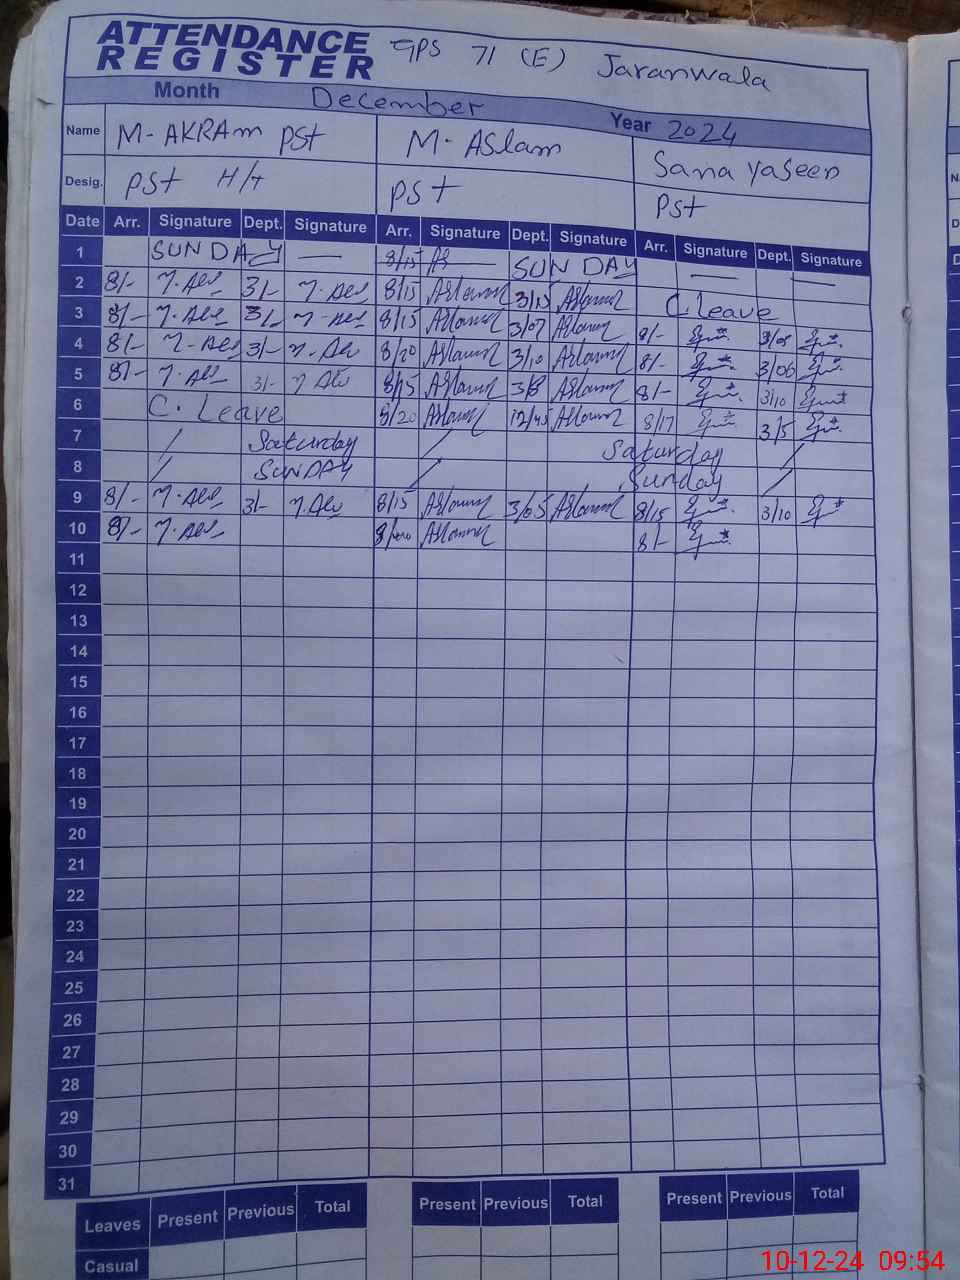 ATTENDANCE REGISTER GPS 71 (E) Jaranwala
Month December Year 2024
Name M-AKRAm PSt M-ASlam Sana Yaseen
Desig. PSt H/t PSt PSt
Date Arr. Signature Dept. Signature Arr. Signature Dept. Signature Arr. Signature Dept. Signature
1 SUNDAY — 8/15 SUNDAY — —
2 8/- 3/- 8/15 Aslam 3/15 Aslam C leave
3 8/- 3/- 8/15 Aslam 3/07 Aslam 8/- 3/05
4 8/- 3/- 8/20 Aslam 3/10 Aslam 8/- 3/06
5 8/- 3/- 8/15 Aslam 3/8 Aslam 8/- 3/10
6 C. Leave 8/20 Aslam 12/45 Aslam 8/17 3/5
7 / Saturday / Saturday /
8 / SUNDAY / Sunday /
9 8/- 3/- 8/15 Aslam 3/05 Aslam 8/15 3/10
10 8/- Aslam 8/-
11
12
13
14
15
16
17
18
19
20
21
22
23
24
25
26
27
28
29
30
31
Leaves Present Previous Total Present Previous Total Present Previous Total
Casual
10-12-24 09:54